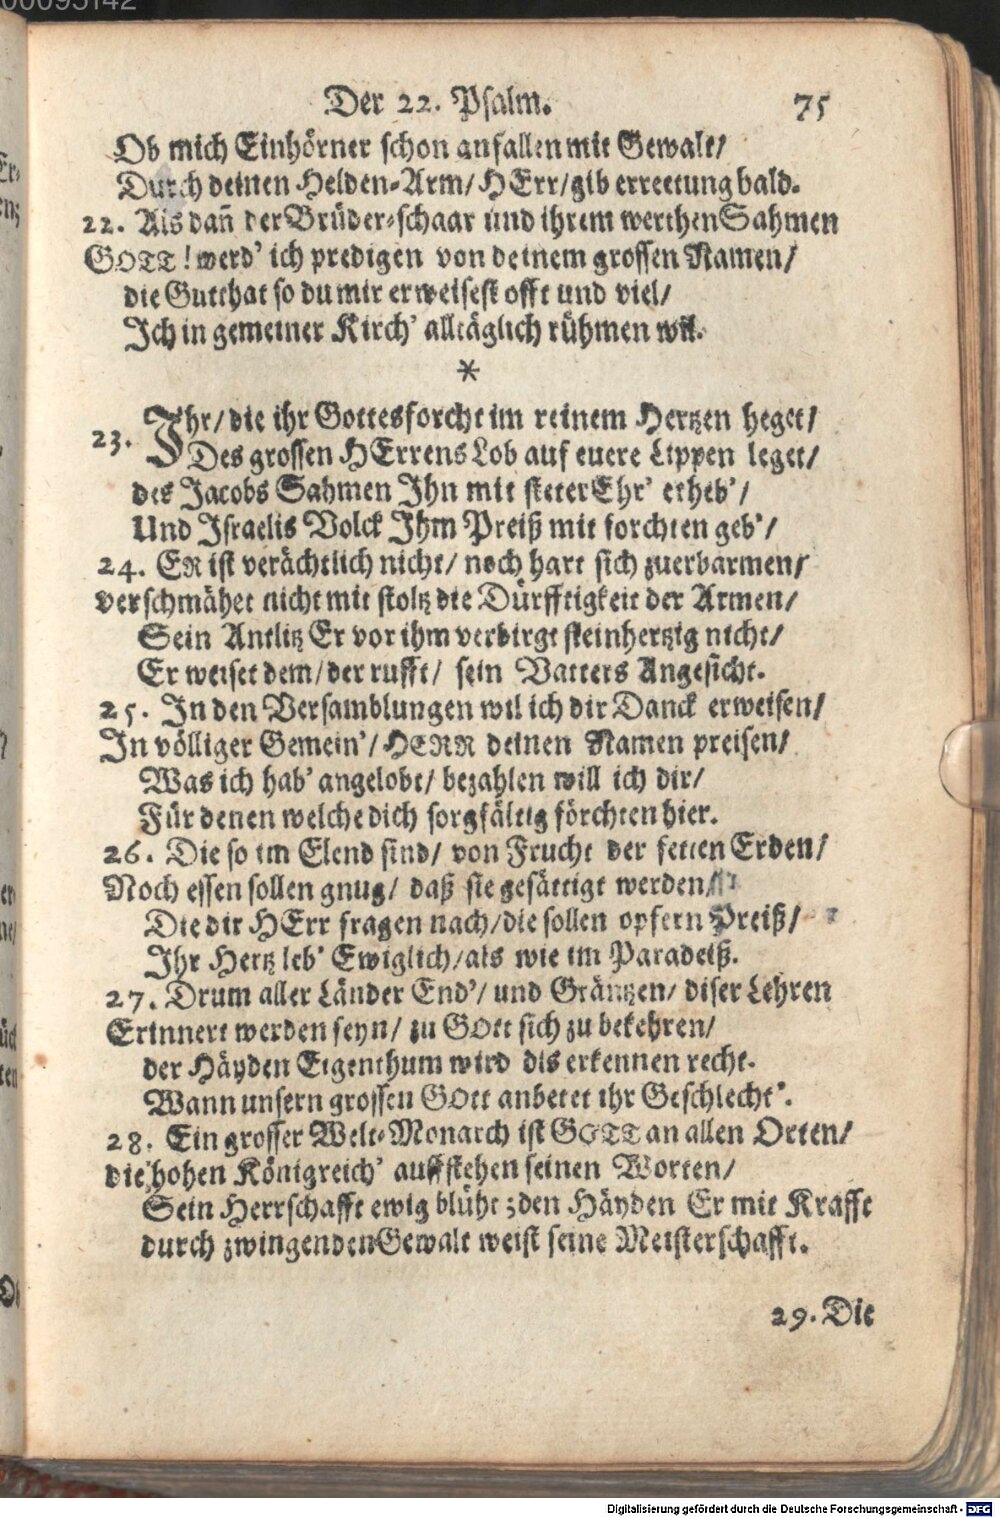 Der 22. Psalm. 75
Ob mich Einhörner schon anfallen mit Gewalt/
Durch deinen Helden-Arm/ HErr/ gib errettung bald.
22. Als dañ der Brüder-schaar und ihrem werthen Sahmen
GOTT! werd' ich predigen von deinem grossen Namen/
die Gutthat so du mir erweisest offt und viel/
Ich in gemeiner Kirch' alltäglich rühmen wil.
*
23. Ihr/ die ihr Gottesforcht im reinem Hertzen heget/
Des grossen HErrens Lob auf euere Lippen leget/
des Jacobs Sahmen Ihn mit steter Ehr' erheb'/
Und Israelis Volck Ihm Preiß mit forchten geb'/
24. ER ist verächtlich nicht/ noch hart sich zuerbarmen/
verschmähet nicht mit stoltz die Dürfftigkeit der Armen/
Sein Antlitz Er vor ihm verbirgt steinhertzig nicht/
Er weiset dem/ der rufft/ sein Vatters Angesicht.
25. In den Versamblungen wil ich dir Danck erweisen/
In völliger Gemein'/ HERR deinen Namen preisen/
Was ich hab' angelobt/ bezahlen will ich dir/
Für denen welche dich sorgfältig förchten hier.
26. Die so im Elend sind/ von Frucht der fetten Erden/
Noch essen sollen gnug/ daß sie gesättigt werden/
Die dir HErr fragen nach/ die sollen opfern Preiß/
Ihr Hertz leb' Ewiglich/ als wie im Paradeiß.
27. Drum aller Länder End'/ und Gräntzen/ diser Lehren
Erinnert werden seyn/ zu GOtt sich zu bekehren/
der Häyden Eigenthum wird dis erkennen recht.
Wann unsern grossen GOtt anbetet ihr Geschlecht'.
28. Ein grosser Welt-Monarch ist GOTT an allen Orten/
die hohen Königreich' auffstehen seinen Worten/
Sein Herrschafft ewig blüht; den Häyden Er mit Krafft
durch zwingenden Gewalt weist seine Meisterschafft.
29. Die
Digitalisierung gefördert durch die Deutsche Forschungsgemeinschaft - DFG